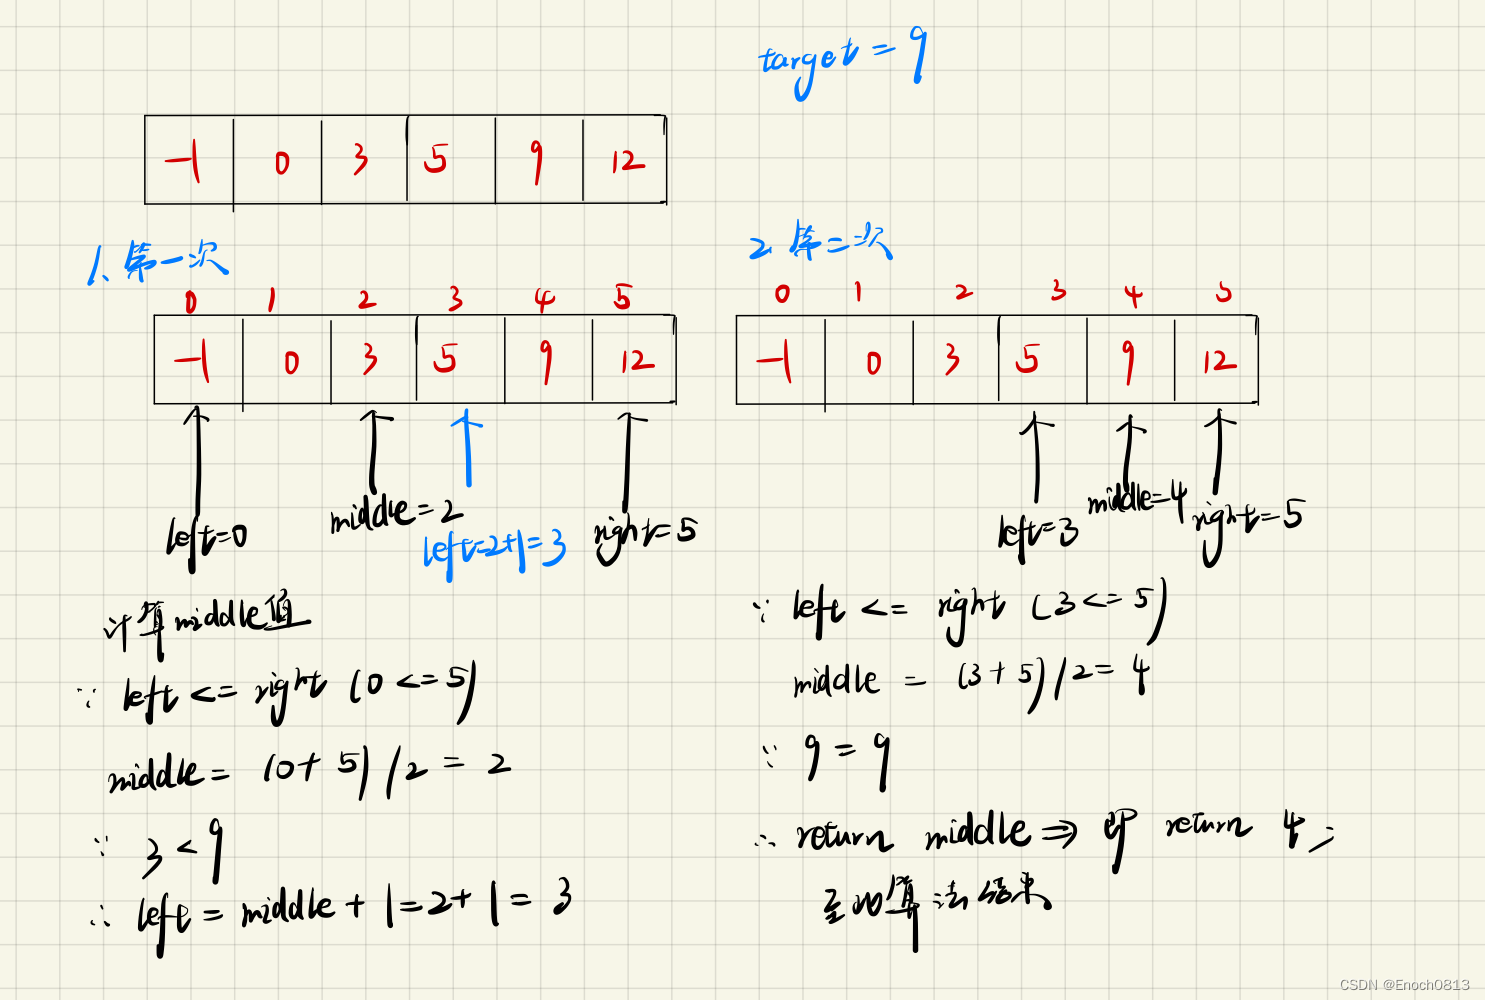 target = 9
-1 0 3 5 9 12
1、第一次
0 1 2 3 4 5
-1 0 3 5 9 12
left=0
middle=2
left=2+1=3
right=5
计算middle值
∵ left <= right (0 <= 5)
middle = (0+5)/2 = 2
∵ 3 < 9
∴ left = middle + 1 = 2+1 = 3
2. 第二次
0 1 2 3 4 5
-1 0 3 5 9 12
left=3
middle=4
right=5
∵ left <= right (3 <= 5)
middle = (3+5)/2 = 4
∵ 9 = 9
∴ return middle ⇒ 即 return 4;
至此算法结束
CSDN @Enoch0813